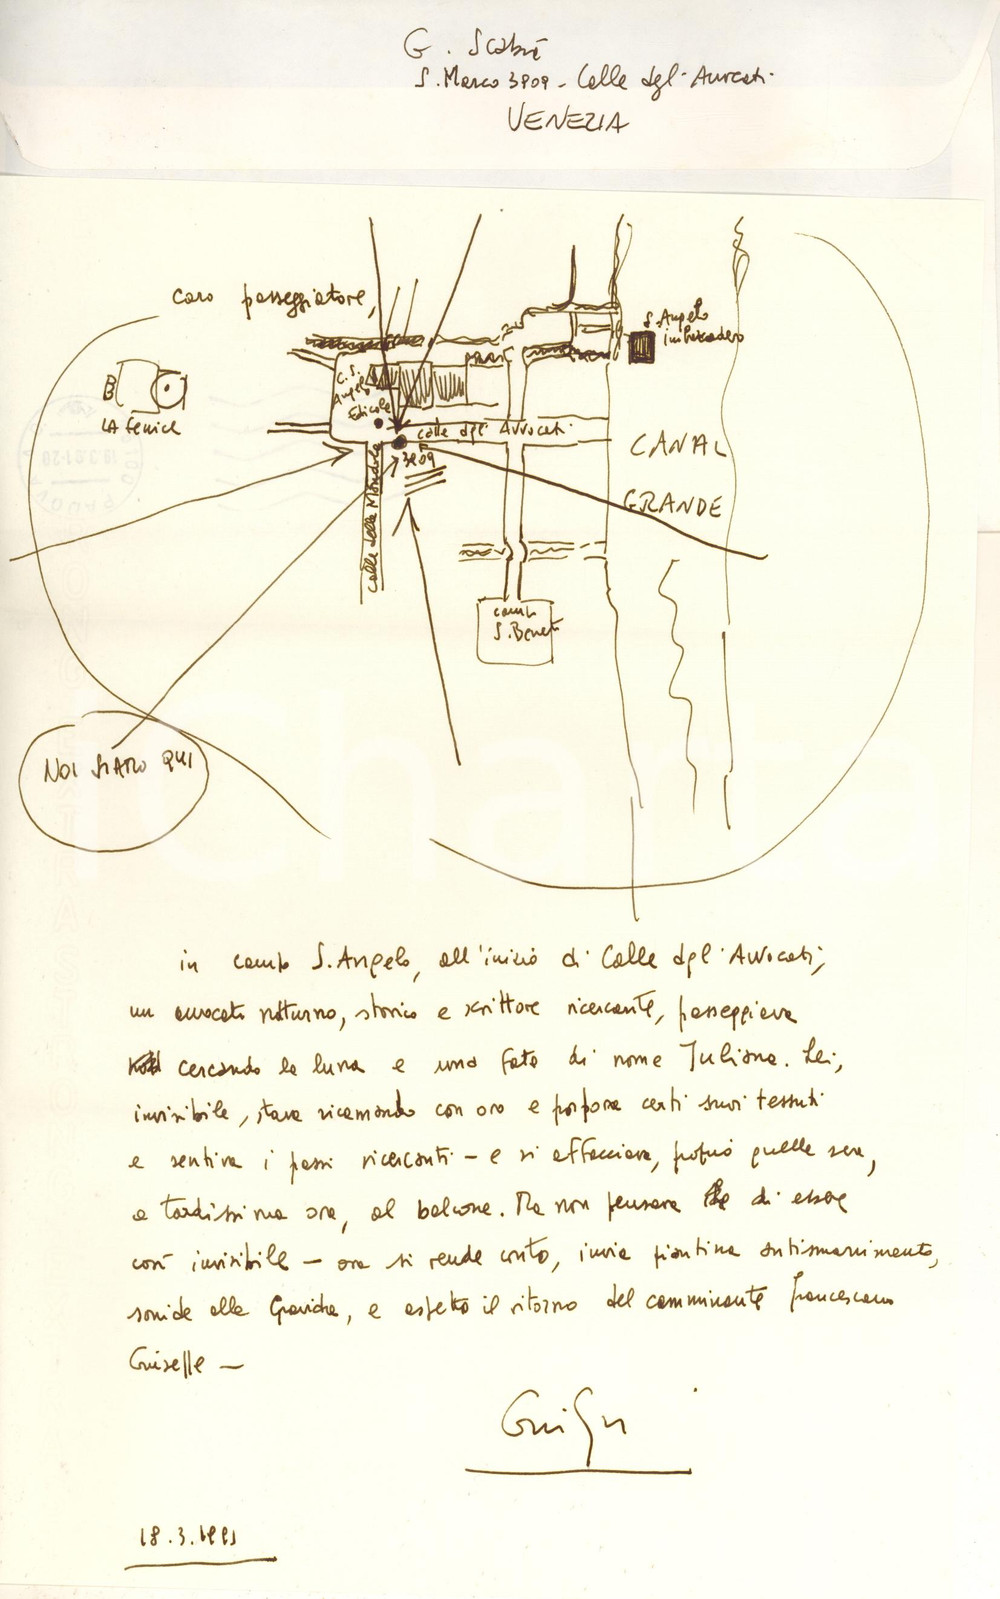 G. Scabia
S. Marco 3909 - Calle degl. Avvocati.
VENEZIA
caro passeggiatore,
S. Angelo
imbarcadero
C. S.
Angelo
Edicola
LA fenice
calle degl. Avvocati.
3909
calle della Mandola
CANAL
GRANDE
campo
S. Beneto
NOI SIAMO QUI
in campo S. Angelo, all'inizio di Calle degl. Avvocati,
un avvocato notturno, storico e scrittore ricercante, passeggiava
cercando la luna e una fata di nome Juliana. Lei,
invisibile, stava ricamando con oro e porpora certi suoi tessuti
e sentiva i passi ricercanti - e si affacciava, proprio quella sera,
a tardissima ora, al balcone. Ma non pensava di essere
così invisibile - ora si rende conto, invia piantina antismarrimento,
sorride alla Gravida, e aspetta il ritorno del camminante francescano
18.3.1991